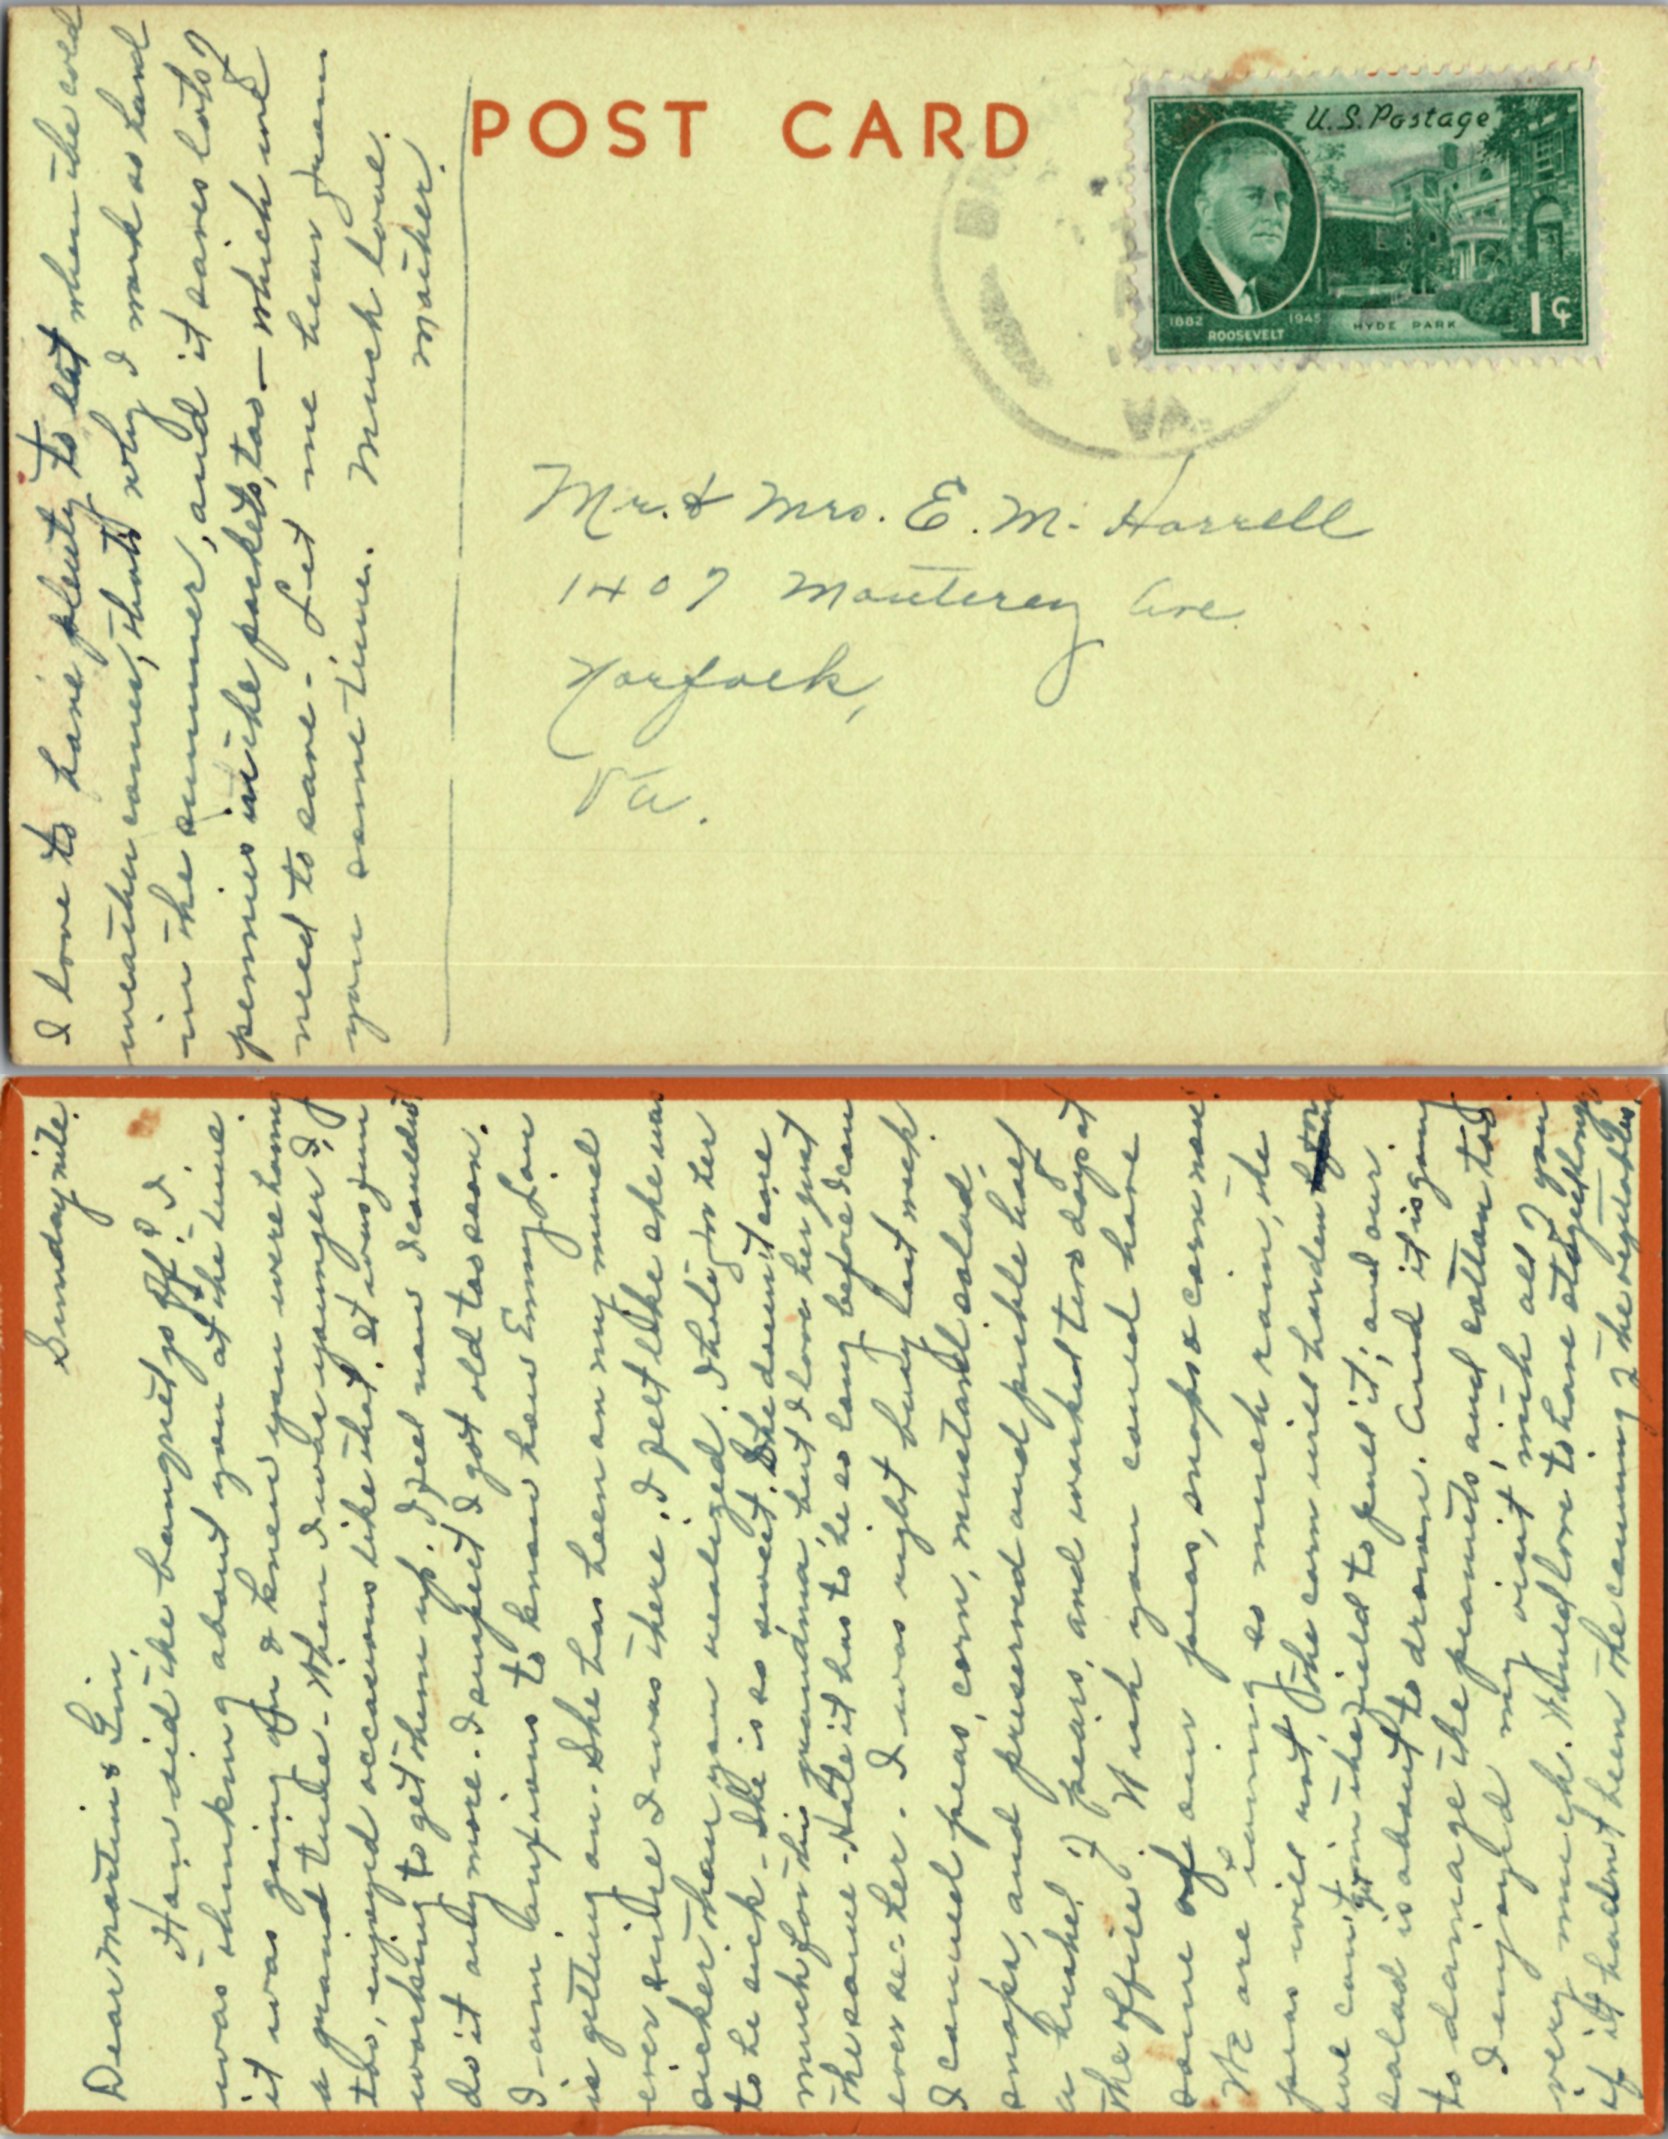 POST CARD
U.S. Postage
1882
1945
ROOSEVELT
HYDE PARK
1¢
VA.
Mr. & Mrs. E. M. Harrell
1407 Monterey Ave.
Norfolk,
Va.
Sunday nite.
Dear Martin & Gin,
How did the banquet go off? I
was thinking about you at the time
it was going on & knew you were having
a grand time. When I was younger I, I
too, enjoyed occasions like that. It was fun
working to get them up. I feel now I couldn't
do it any more. I suspect I got old too soon.
I am anxious to know how Emmy Lou
is getting on. She has been on my mind
ever since I was there. I felt like she was
sicker than you realized. I hate for her
to be sick - She is so sweet. She doesn't care
much for this grandma, but I love her just
the same. Hate it has to be so long before I can
ever see her. I was right busy last week.
I canned peas, corn, mustard salad,
snaps, and preserved and pickle half
a bushel of pears, and worked two days at
the office. Wish you could have
some of our peas, snaps & corn now.
We are having so much rain, the
peas will rot, the corn will harden for
we can't get in the field to pull it, and our
salad is about to drown. And it is going
to damage the peanuts and cotton too.
I enjoyed my visit with all of you
very much. Would love to have stayed longer
if it hadn't been the canning of the vegetables.
I love to have plenty to eat when the cold
weather comes, that's why I work so hard
in the summer, and it saves lots of
pennies in the pockets, too - which we
need to save. Let me hear from
you some time. Much love.
Mother.